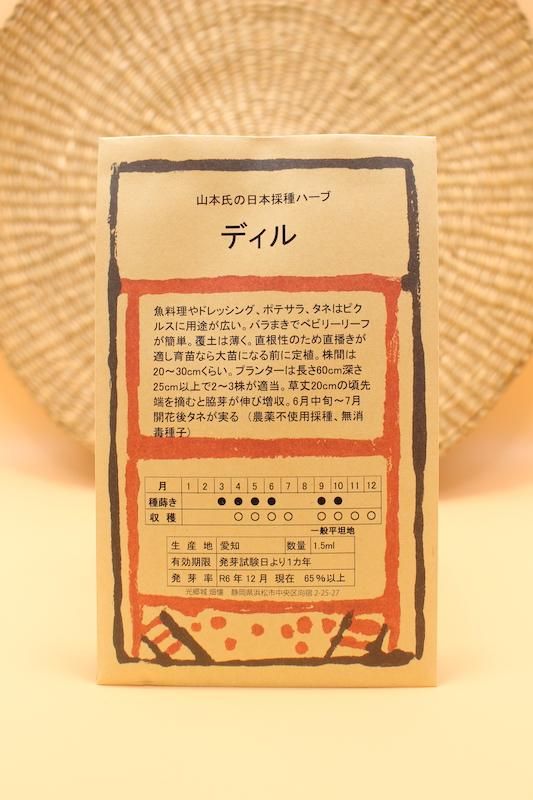 山本氏の日本採種ハーブ
ディル
魚料理やドレッシング、ポテサラ、タネはピク
ルスに用途が広い。バラまきでベビリーリーフ
が簡単。覆土は薄く。直根性のため直播きが
適し育苗なら大苗になる前に定植。株間は
20～30cmくらい。プランターは長さ60cm深さ
25cm以上で2～3株が適当。草丈20cmの頃先
端を摘むと脇芽が伸び増収。6月中旬～7月
開花後タネが実る （農薬不使用採種、無消
毒種子）
月 1 2 3 4 5 6 7 8 9 10 11 12
種蒔き ● ● ● ● ● ●
収穫 ○ ○ ○ ○ ○ ○ ○ ○
一般平坦地
生産地 愛知 数量 1.5ml
有効期限 発芽試験日より1カ年
発芽率 R6年12月 現在 65%以上
光郷城 畑懐 静岡県浜松市中央区向宿2-25-27